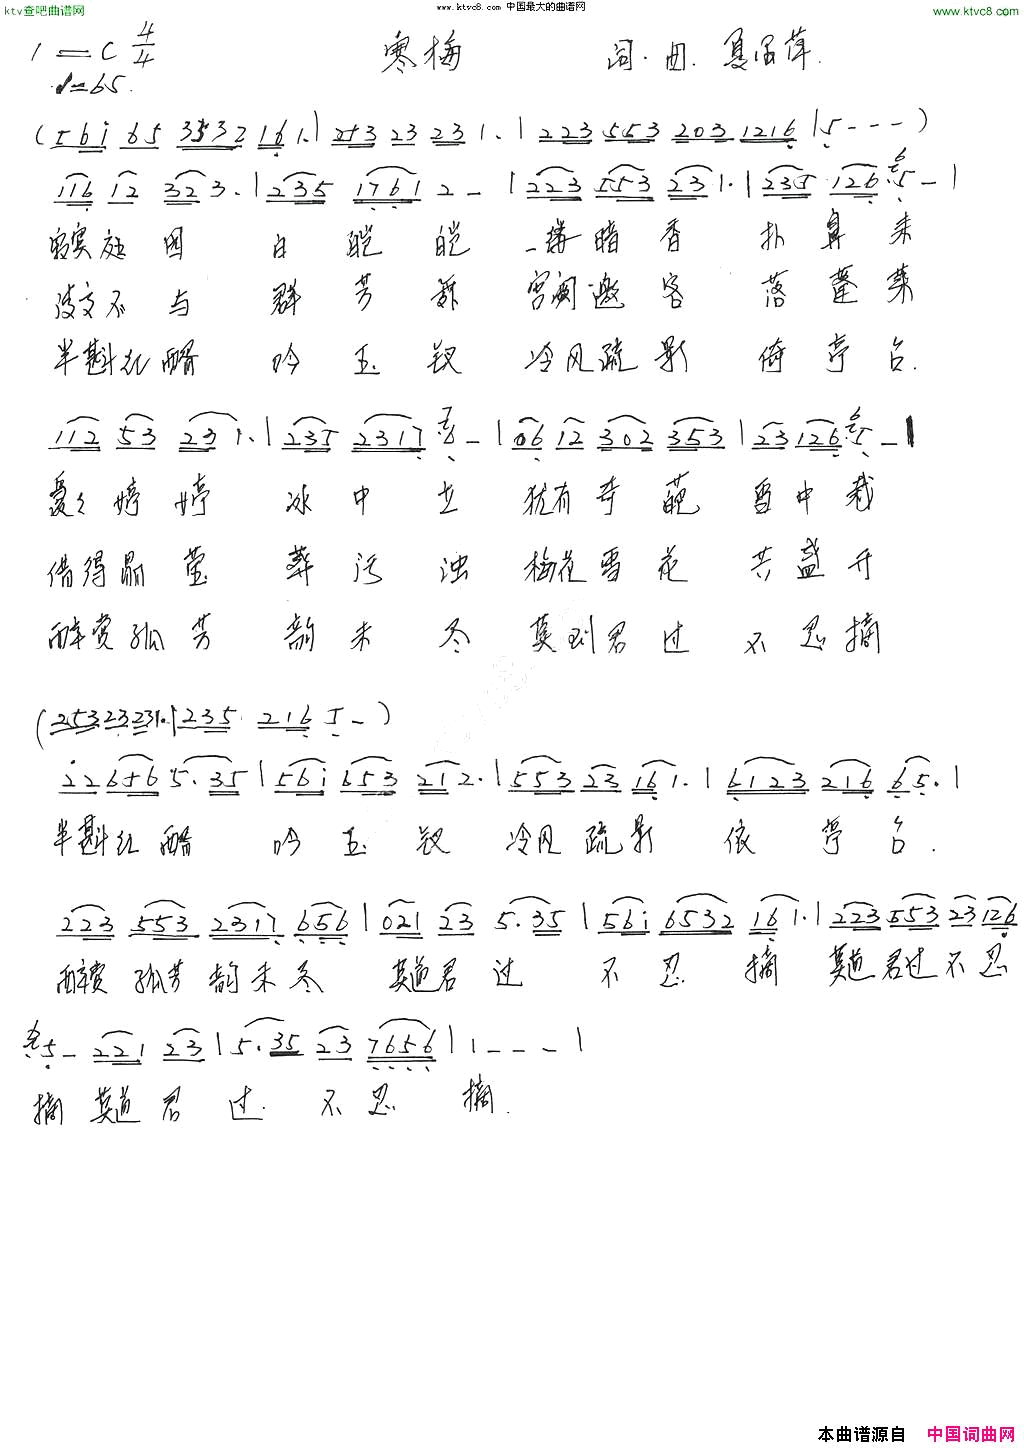 ktv查吧曲谱网
www.ktvc8.com 中国最大的曲谱网
www.ktvc8.com
1=C 4/4 寒梅 词.曲.夏
♩=65.
(561 65 3532 161.|253 23 231.|223 553 203 1216|5---)
116 12 323.|235 1761 2-|223 553 231.|235 126 5-|
寂寞庭园 白皑皑 一缕暗香 扑鼻来
不与群芳 宫阙邀客 落蓬莱
半斟红醑 吟玉钗 冷风疏影 倚亭台.
112 53 231.|235 2317 6-|06 12 302 353|23 126 5-|
婷婷 冰中立 犹有奇葩 雪中栽
借得晶莹 葬污浊 梅花雪花 共盛开
醉赏孤芳 韵未尽 莫到君过 不忍摘
(253 23 231.|235 216 1-)
22 656 5.35|561 653 212.|553 23 161.|6123 216 65.|
半斟红醑 吟玉钗 冷风疏影 依亭台.
223 553 2317 656|021 23 5.35|561 6532 161.|223 553 23 126
醉赏孤芳韵未尽 莫道君过 不忍 摘 莫道君过不忍
5- 221 23|5.35 23 7656|1---|
摘 莫道君过. 不忍 摘.
本曲谱源自 中国词曲网